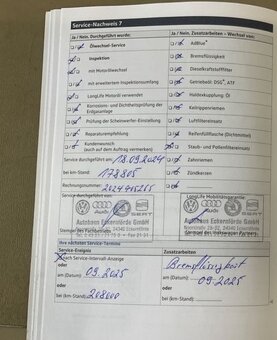 Service-Nachweis 7
Ja / Nein, Durchgeführt wurde:
Ölwechsel-Service
Inspektion
mit Motorölwechsel
mit erweitertem Inspektionsumfang
LongLife Motoröl verwendet
Korrosions- und Dichtheitsprüfung der
Erdgasanlage
Prüfung der Scheinwerfer-Einstellung
Reparaturempfehlung
Kundenwunsch
(auch auf dem Auftrag vermerken)
Service durchgeführt am: 18.09.2024
bei km-Stand: 178805
Rechnungsnummer:
Service durchgeführt von:
Autohaus Eckernförde GmbH
24340 Eckernförde
Stempel des Fachbetriebs
Ihre nächsten Service-Termine
Service-Ereignis
nach Service-Intervall-Anzeige
oder
am (Datum): 09.2025
oder
bei (km-Stand): 208800
Ja / Nein, Zusatzarbeiten – Wechsel von:
AdBlue
Bremsflüssigkeit
Dieselkraftstofffilter
Getriebeöl: DSG, ATF
Haldexkupplung: Öl
Keilrippenriemen
Luftfiltereinsatz
Reifenfüllflasche (Dichtmittel)
Staub- und Pollenfiltereinsatz
Zahnriemen
Zündkerzen
LongLife Mobilitätsgarantie
Autohaus Eckernförde GmbH
24340 Eckernförde
Stempel des Volkswagen Partners
Zusatzarbeiten
Bremsflüssigkeit
am (Datum): 09.2025
oder
bei (km-Stand):